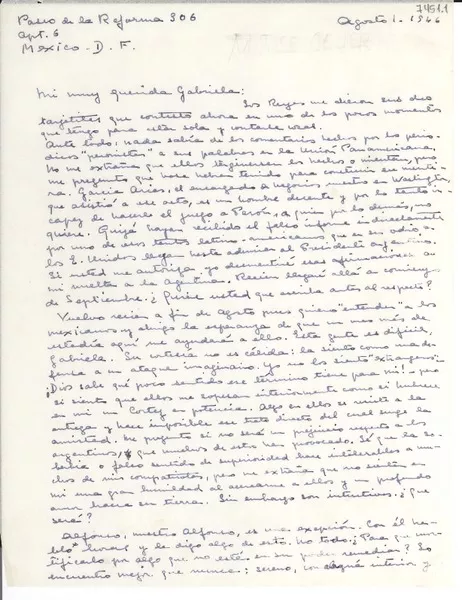 7451.1
Paseo de la Reforma 306
Apt. 6
Mexico - D. F.
Agosto 1. 1946
Mi muy querida Gabriela:
Los Reyes me dieron sus dos
tarjetitas que contesto ahora en uno de los pocos momentos
que tengo para estar sola y contarle
Ante todo: nada sabía de los comentarios hechos por los perió-
dicos "peronistas" a sus palabras en la Unión Panamericana.
No me extraña que ellos tergiversen los hechos o mientan, pero
me pregunto qué base habrán tenido para construir su menti-
ra. García Arias, el encargado de negocios nuestro en Washington,
que asistió a ese acto, es un hombre decente y por lo tanto in-
capaz de hacerle el juego a Perón, a quien por lo demás, no
quiere. Quizá hayan recibido el falso informe indirectamente
por uno de esos tantos latino-americanos que en su odio a
los E. Unidos llegan hasta admirar al Presidente argentino.
Si usted me autoriza yo desmentiré esas afirmaciones a
mi vuelta a la Argentina. Recién llegaré allá a comienzos
de Septiembre. ¿Quiere usted que escriba antes al respecto?
Vuelvo recién a fin de Agosto pues quiero "entender" a los
mexicanos y abrigo la esperanza de que un mes más de
estadía aquí me ayudará a ello. Esta gente es difícil,
Gabriela. Su cortesía no es cálida: la siento como una de-
fensa a un ataque imaginario. Yo no los siento "extranjeros"
¡Dios sabe qué poco sentido ese término tiene para mí! - pero
sí siento que ellos me esperan interiormente como si hubiese
en mí un Cortez en potencia. Algo en ellos se resiste a la
entrega y hace imposible ese trato directo del cual surge la
amistad. Me pregunto si no será un prejuicio respecto a los
argentinos, que muchos de estos han provocado. Sé que la so-
berbia o falso sentido de superioridad hace intolerables a mu-
chos de mis compatriotas, pero me extraña que no sientan en
mí una gran humildad al acercarme a ellos y un profundo
amor hacia su tierra. Sin embargo son intuitivos. ¿Qué
será?
Alfonso, nuestro Alfonso, es una excepción. Con él ha-
blo horas y le digo algo de esto. No todo. ¿Para qué mor-
tificarlo por algo que no está en su poder remediar? Lo
encuentro mejor que nunca: sereno, con alegría interior y